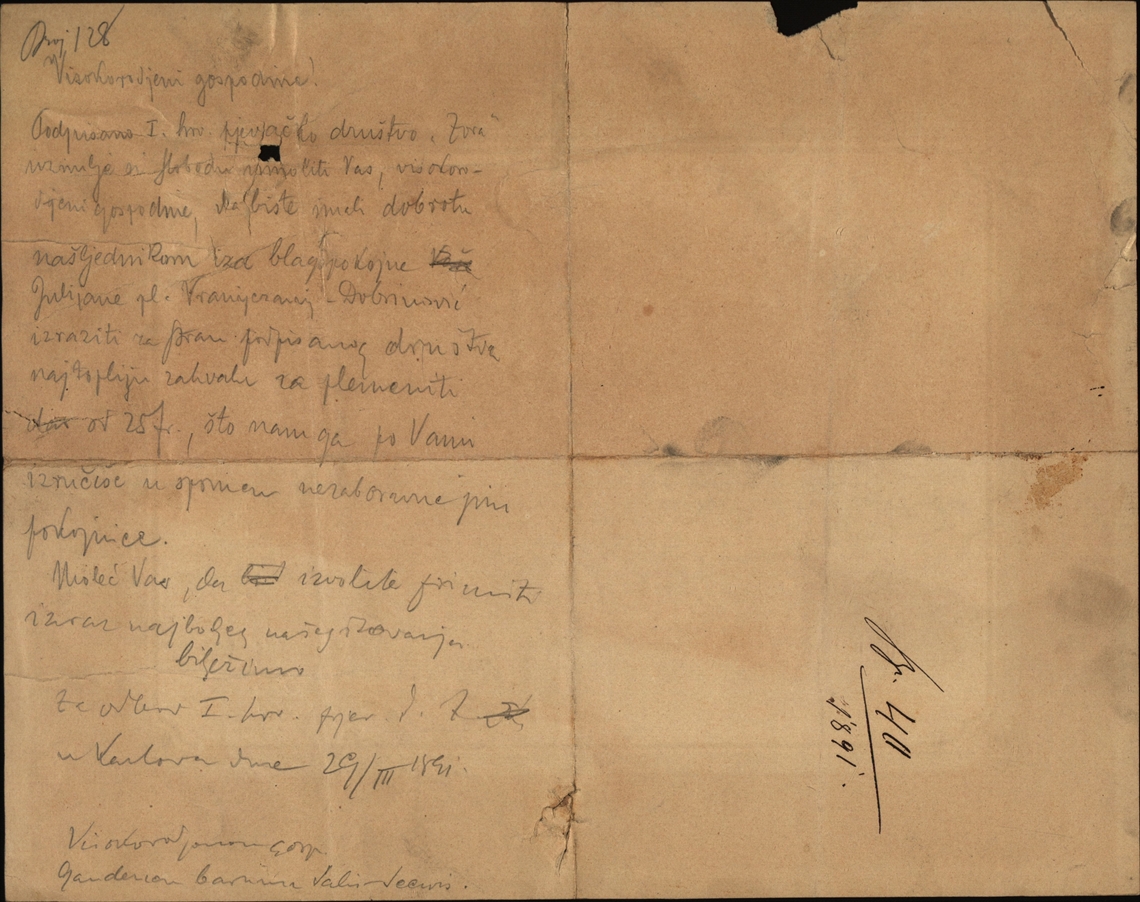 Broj 128
Visokorodjeni gospodine!
Podpisano I. hrv. pjevačko društvo „Zora"
uzimlje si slobodu umoliti Vas, visokoro-
djeni gospodine, da biste imali dobrotu
našljednikom iza blagopokojne
Julijane pl. Vranyczany-Dobrinović
izraziti za stran podpisanog društva
najtopliju zahvalu za plemeniti
dar od 25 fr., što nam ga po Vami
izručiše u spomen nezaboravne jim
pokojnice.
Moleć Vas, da izvolite primiti
izraz najboljeg našeg štovanja
bilježimo
Za odbor I. hrv. pjev. d. Z
u Karlovcu dne 29/III 1891.
Visokorodjenom gosp.
barunu Salis-Seewis.
Br. 40
1891.